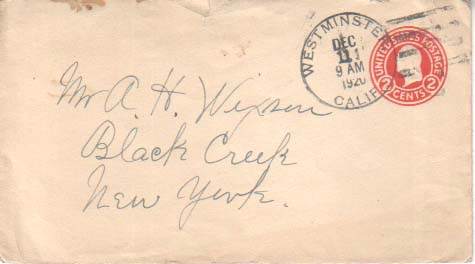 WESTMINSTER
DEC
11
9 AM
1920
CALIF.
UNITED STATES POSTAGE
2 2
CENTS
Mr A. H. Wipson
Black Creek
New York.